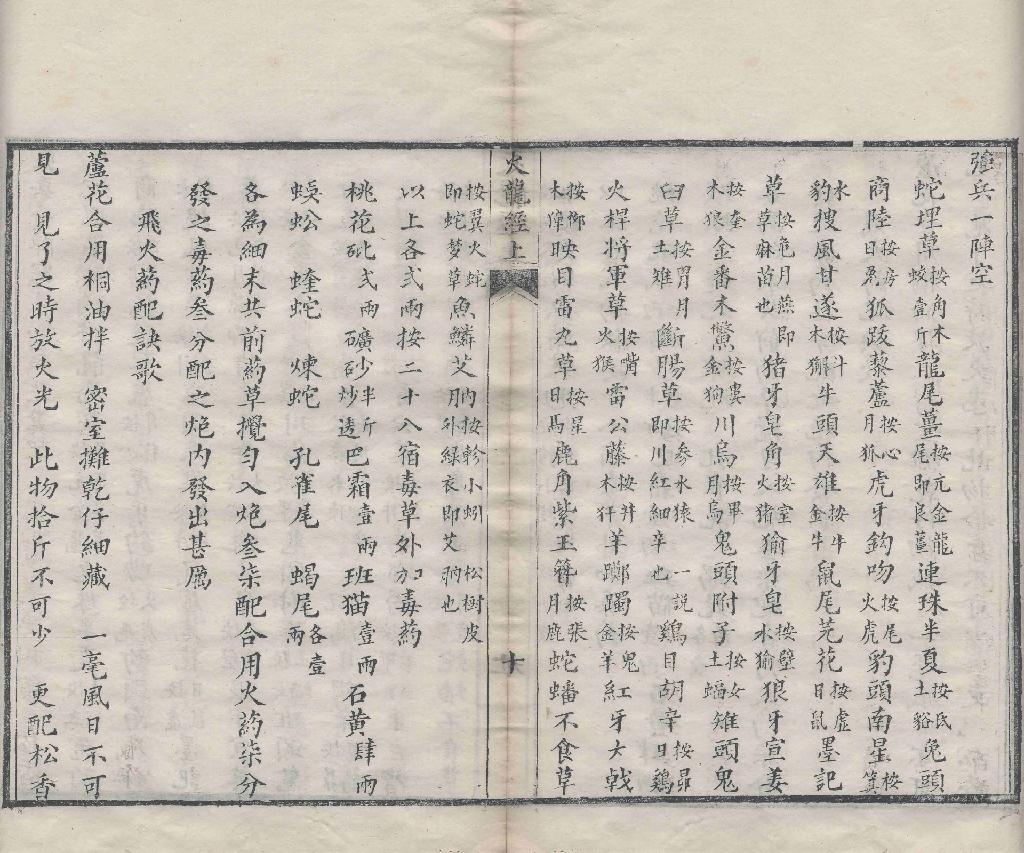 強兵一陣空
蛇埋草按角木蛟壹斤龍尾薑按亢金龍尾即良薑連珠半夏按氐土貉兔頭
商陸按房日兔狐跂藜蘆按心月狐虎牙鈎吻按尾火虎豹頭南星按箕
水豹搜風甘遂按斗木獬牛頭天雄按牛金牛鼠尾芫花按虛日鼠墨記
草按危月燕即草麻苗也猪牙皂角按室火猪㺄牙皂按壁水㺄狼牙宣姜
按奎木狼金番木鱉按婁金狗川烏按畢月烏鬼頭附子按女土蝠雉頭鬼
臼草按胃月土雉斷腸草按參水猿即川紅細辛也一説鷄目胡辛按昴日鷄
火桿將軍草按嘴火猴雷公藤按井木犴羊躑躅按鬼金羊紅牙大戟
按柳木獐映目雷丸草按星日馬鹿角紫王簪按張月鹿蛇蟠不食草
火龍經上
十
按翼火蛇即蛇夢草魚鱗艾按軫小蚓内月外緑衣即艾䓈也松樹皮
以上各弍両按二十八宿毒草外加毒药
桃花砒弍両礦砂半斤炒透巴霜壹両班猫壹両石黄肆両
蜈蚣　蝰蛇　煉蛇　孔雀尾　蝎尾各壹両
各為細末共前药草攪匀入炮叁柒配合用火药柒分
發之毒药叁分配之炮内發出甚厲
飛火药配訣歌
蘆花合用桐油拌　密室攤乾仔細藏　一毫風日不可
見　見了之時放火光　此物拾斤不可少　更配松香